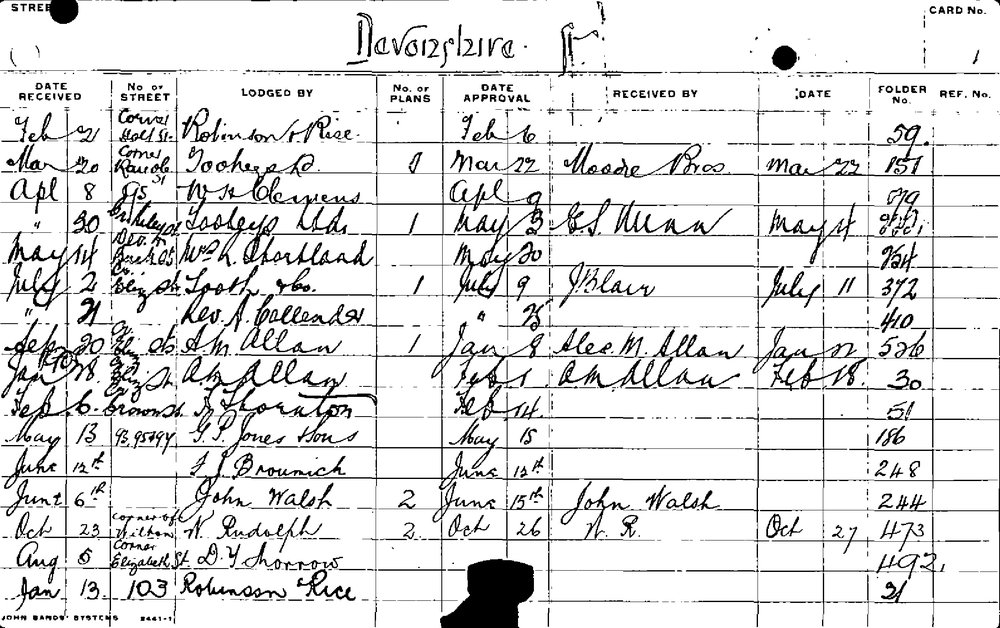 STREE
CARD No.
Devonshire St
1
DATE RECEIVED No OF STREET LODGED BY No. OF PLANS DATE APPROVAL RECEIVED BY DATE FOLDER No. REF. No.
Feb 21 Corner Holt St. Robinson & Rice Feb 6 59.
Mar 20 Corner St Tooheys Ld. 1 Mar 22 Moodie Bros. Mar 22 151
Apl 8 W H Clemens Apl 9
" 30 Tooheys Ltd. 1 May 3 May 4
May 14 Mrs L Shortland May 20 254
July 2 Co. Eliz St Tooth & Co. 1 July 9 J Blair July 11 372
" 21 Rev. A. Callender " 25 410
Sep 20 Cr Eliz St A M Allan 1 Jan 8 Alec. M. Allan Jan 526
Jan 28 Cr Eliz St A M Allan Feb 1 A M Allan Feb 18. 30
Feb 6. Cr Crown St. Thornton Feb 14. 51
May 13 93, 95 & 97 G. P. Jones & Sons May 15 186
June 12th F J Brounich June 12th 248
June 6th John Walsh 2 June 15th John Walsh 244
Oct 23 corner of N. Rudolph 2. Oct 26 N. R. Oct 27 473
Aug 5 Corner Elizabeth St. D. Y. Morrow 492.
Jan 13. 103 Robinson & Rice 21
JOHN SANDS' SYSTEMS 2441-1